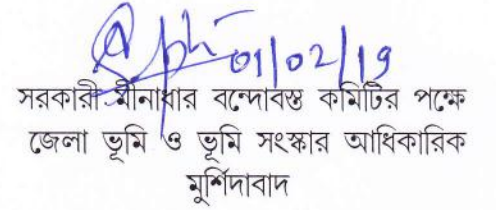 01/02/19
সরকারী মীনাধার বন্দোবস্ত কমিটির পক্ষে
জেলা ভূমি ও ভূমি সংস্কার আধিকারিক
মুর্শিদাবাদ